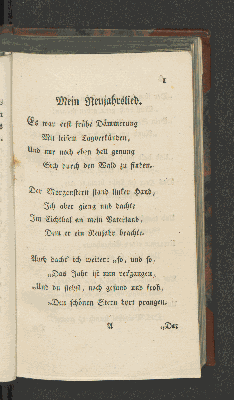 1
Mein Neujahrslied.
Es war erst frühe Dämmerung
Mit leisem Tagverkünden,
Und nur noch eben hell genung
Sich durch den Wald zu finden.
Der Morgenstern stand linker Hand,
Ich aber gieng und dachte
Im Eichthal an mein Vaterland,
Dem er ein Neujahr brachte.
Auch dacht' ich weiter: „so, und so,
„Das Jahr ist nun vergangen,
„Und du siehst, noch gesund und froh,
„Den schönen Stern dort prangen.
A
„Der